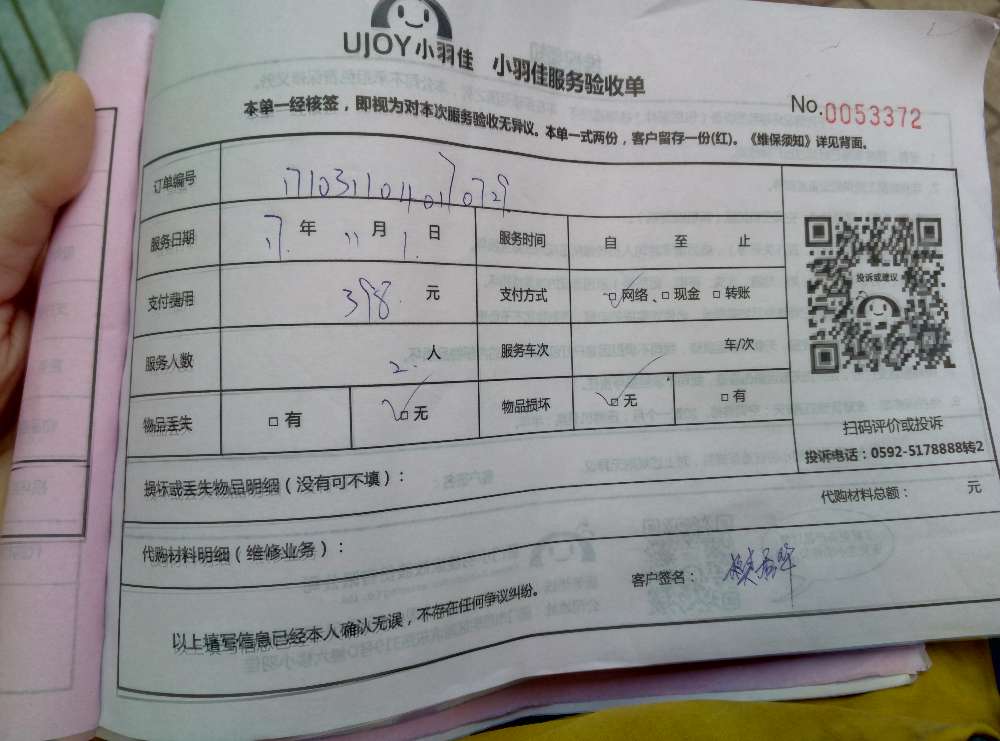 UJOY小羽佳 小羽佳服务验收单
No.0053372
本单一经核签，即视为对本次服务验收无异议。本单一式两份，客户留存一份(红)。《维保须知》详见背面。
订单编号 17103110401170729
服务日期 17年 11月 1日 服务时间 自 至 止
支付费用 398 元 支付方式 □网络、□现金 □转账
服务人数 2 人 服务车次 车/次
物品丢失 □有 □无 物品损坏 □无 □有
投诉或建议
扫码评价或投诉
投诉电话：0592-5178888转2
损坏或丢失物品明细（没有可不填）：
代购材料明细（维修业务）： 代购材料总额： 元
以上填写信息已经本人确认无误，不存在任何争议纠纷。 客户签名：